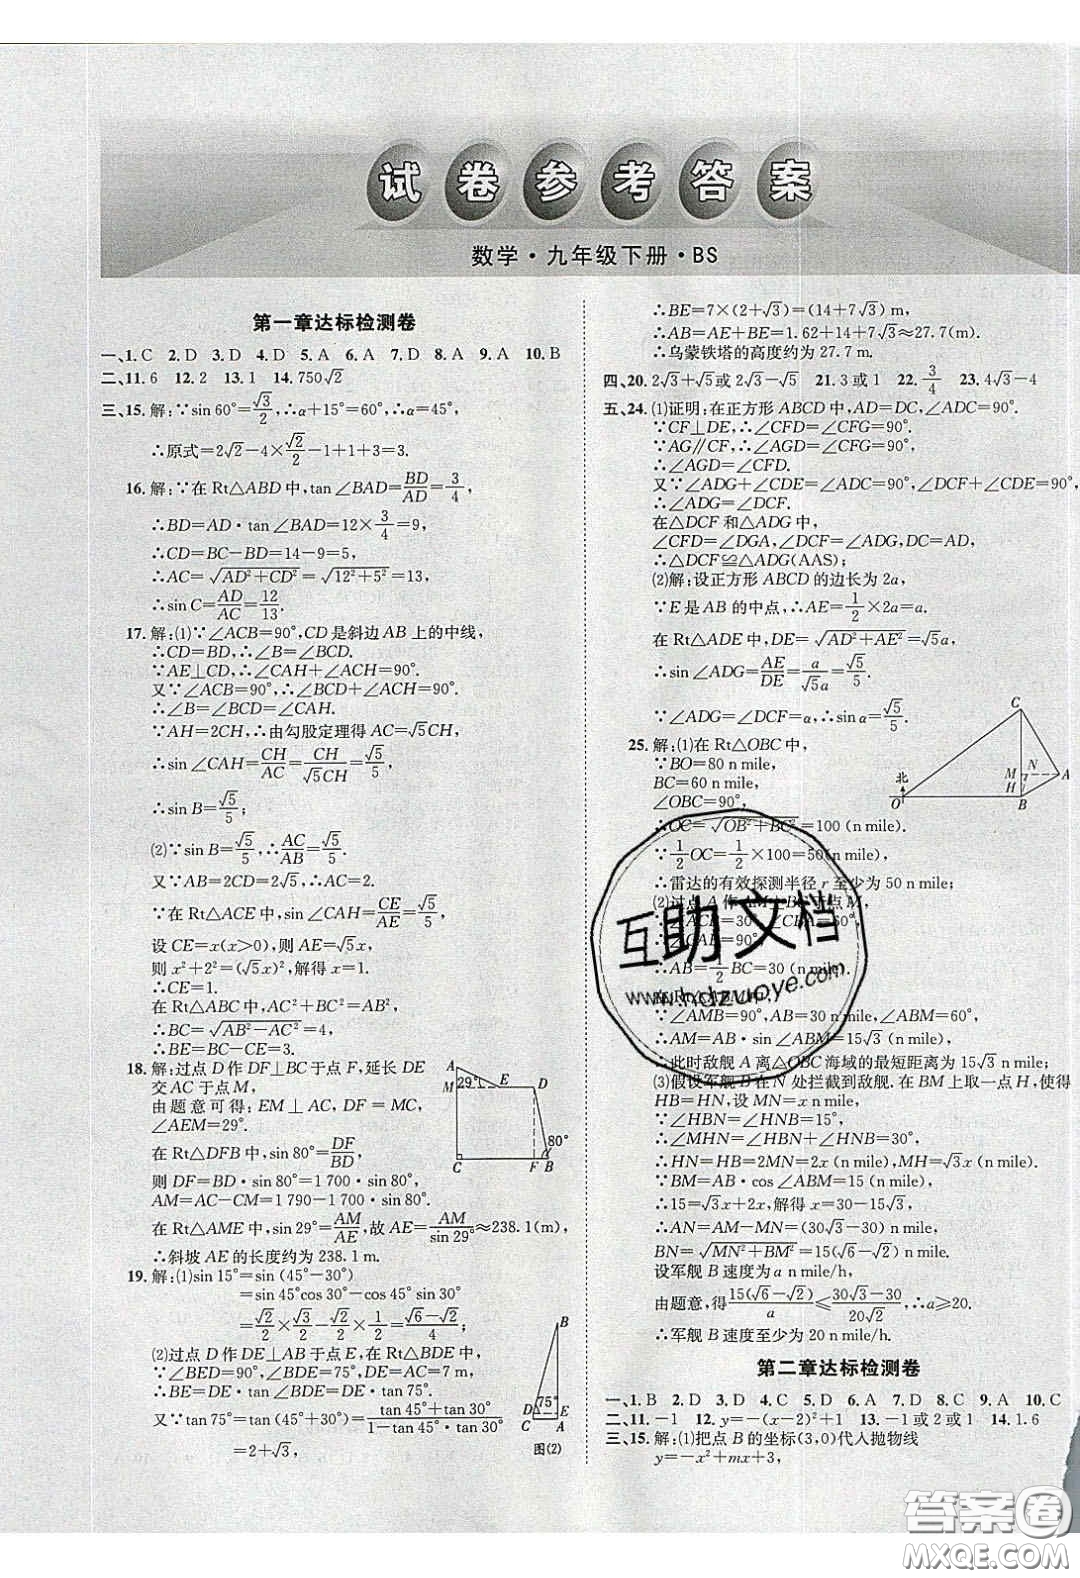 试卷参考答案
数学·九年级下册·BS
第一章达标检测卷
一、1. C 2. D 3. D 4. D 5. A 6. A 7. D 8. A 9. A 10. B
二、11. 6 12. 2 13. 1 14. 750√2
三、15. 解:∵sin 60°=√3/2,∴α+15°=60°,∴α=45°,
∴原式=2√2-4×√2/2-1+1+3=3.
16. 解:∵在 Rt△ABD 中,tan∠BAD=BD/AD=3/4,
∴BD=AD·tan∠BAD=12×3/4=9,
∴CD=BC-BD=14-9=5,
∴AC=√(AD²+CD²)=√(12²+5²)=13,
∴sin C=AD/AC=12/13.
17. 解:(1)∵∠ACB=90°,CD是斜边AB上的中线,
∴CD=BD,∴∠B=∠BCD.
∵AE⊥CD,∴∠CAH+∠ACH=90°.
又∵∠ACB=90°,∴∠BCD+∠ACH=90°.
∴∠B=∠BCD=∠CAH.
∵AH=2CH,∴由勾股定理得AC=√5CH,
∴sin∠CAH=CH/AC=CH/√5CH=√5/5,
∴sin B=√5/5;
(2)∵sin B=√5/5,∴AC/AB=√5/5.
又∵AB=2CD=2√5,∴AC=2.
∵在 Rt△ACE 中,sin∠CAH=CE/AE=√5/5,
设CE=x(x>0),则AE=√5x,
则x²+2²=(√5x)²,解得x=1.
∴CE=1.
在 Rt△ABC 中,AC²+BC²=AB²,
∴BC=√(AB²-AC²)=4,
∴BE=BC-CE=3.
18. 解:过点D作DF⊥BC于点F,延长DE
交AC于点M,
由题意可得:EM⊥AC,DF=MC,
∠AEM=29°.
在 Rt△DFB 中,sin 80°=DF/BD,
则DF=BD·sin 80°=1 700·sin 80°,
AM=AC-CM=1 790-1 700·sin 80°.
在 Rt△AME 中,sin 29°=AM/AE,故AE=AM/sin 29°≈238.1(m),
∴斜坡AE的长度约为238.1 m.
A
29°
M
E
D
80°
C
F
B
19. 解:(1)sin 15°=sin(45°-30°)
=sin 45°cos 30°-cos 45°sin 30°
=√2/2×√3/2-√2/2×1/2=(√6-√2)/4;
(2)过点D作DE⊥AB于点E,在 Rt△BDE 中,
∵∠BED=90°,∠BDE=75°,DE=AC=7 m,
∴BE=DE·tan∠BDE=DE·tan 75°.
又∵tan 75°=(tan 45°+tan 30°)/(1-tan 45°·tan 30°)
=2+√3,
B
75°
D
E
C
A
图(2)
∴BE=7×(2+√3)=(14+7√3) m,
∴AB=AE+BE=1.62+14+7√3≈27.7(m).
∴乌蒙铁塔的高度约为27.7 m.
四、20. 2√3+√5或2√3-√5 21. 3或1 22. 3/4 23. 4√3-4
五、24. (1)证明:在正方形ABCD中,AD=DC,∠ADC=90°.
∵CF⊥DE,∴∠CFD=∠CFG=90°.
∵AG∥CF,∴∠AGD=∠CFG=90°.
∴∠AGD=∠CFD.
又∵∠ADG+∠CDE=∠ADC=90°,∠DCF+∠CDE=90°,
∴∠ADG=∠DCF.
在△DCF和△ADG中,
∠CFD=∠DGA,∠DCF=∠ADG,DC=AD,
∴△DCF≌△ADG(AAS);
(2)解:设正方形ABCD的边长为2a,
∵E是AB的中点,∴AE=1/2×2a=a.
在 Rt△ADE 中,DE=√(AD²+AE²)=√5a,
∴sin∠ADG=AE/DE=a/√5a=√5/5.
∵∠ADG=∠DCF=α,∴sin α=√5/5.
25. 解:(1)在 Rt△OBC 中,
∵BO=80 n mile,
BC=60 n mile,
∠OBC=90°,
∴OC=√(OB²+BC²)=100(n mile).
∵1/2OC=1/2×100=50(n mile),
∴雷达的有效探测半径r至少为50 n mile;
(2)过点A作AM⊥BC于点M,
∴AB=1/2BC=30(n mile).
∵∠AMB=90°,AB=30 n mile,∠ABM=60°,
∴AM=AB·sin∠ABM=15√3(n mile).
∴此时敌舰A离△OBC海域的最短距离为15√3 n mile;
(3)假设军舰B在N处拦截到敌舰.在BM上取一点H,使得
HB=HN,设MN=x n mile,
∵∠HBN=∠HNB=15°,
∴∠MHN=∠HBN+∠HNB=30°,
∴HN=HB=2MN=2x(n mile),MH=√3x(n mile).
∵BM=AB·cos∠ABM=15(n mile),
∴15=√3x+2x,解得x=30-15√3,
∴AN=AM-MN=(30√3-30) n mile,
BN=√(MN²+BM²)=15(√6-√2) n mile.
设军舰B速度为a n mile/h,
由题意,得15(√6-√2)/a≤(30√3-30)/20√2,∴a≥20.
∴军舰B速度至少为20 n mile/h.
C
北
M
N
A
H
O
B
第二章达标检测卷
一、1. B 2. D 3. D 4. C 5. D 6. A 7. D 8. C 9. A 10. C
二、11. -1 12. y=-(x-2)²+1 13. -1或2或1 14. 1.6
三、15. 解:(1)把点B的坐标(3,0)代入抛物线
y=-x²+mx+3,
互助文档
www.hdzuoye.com
答案圈
MXQE.COM